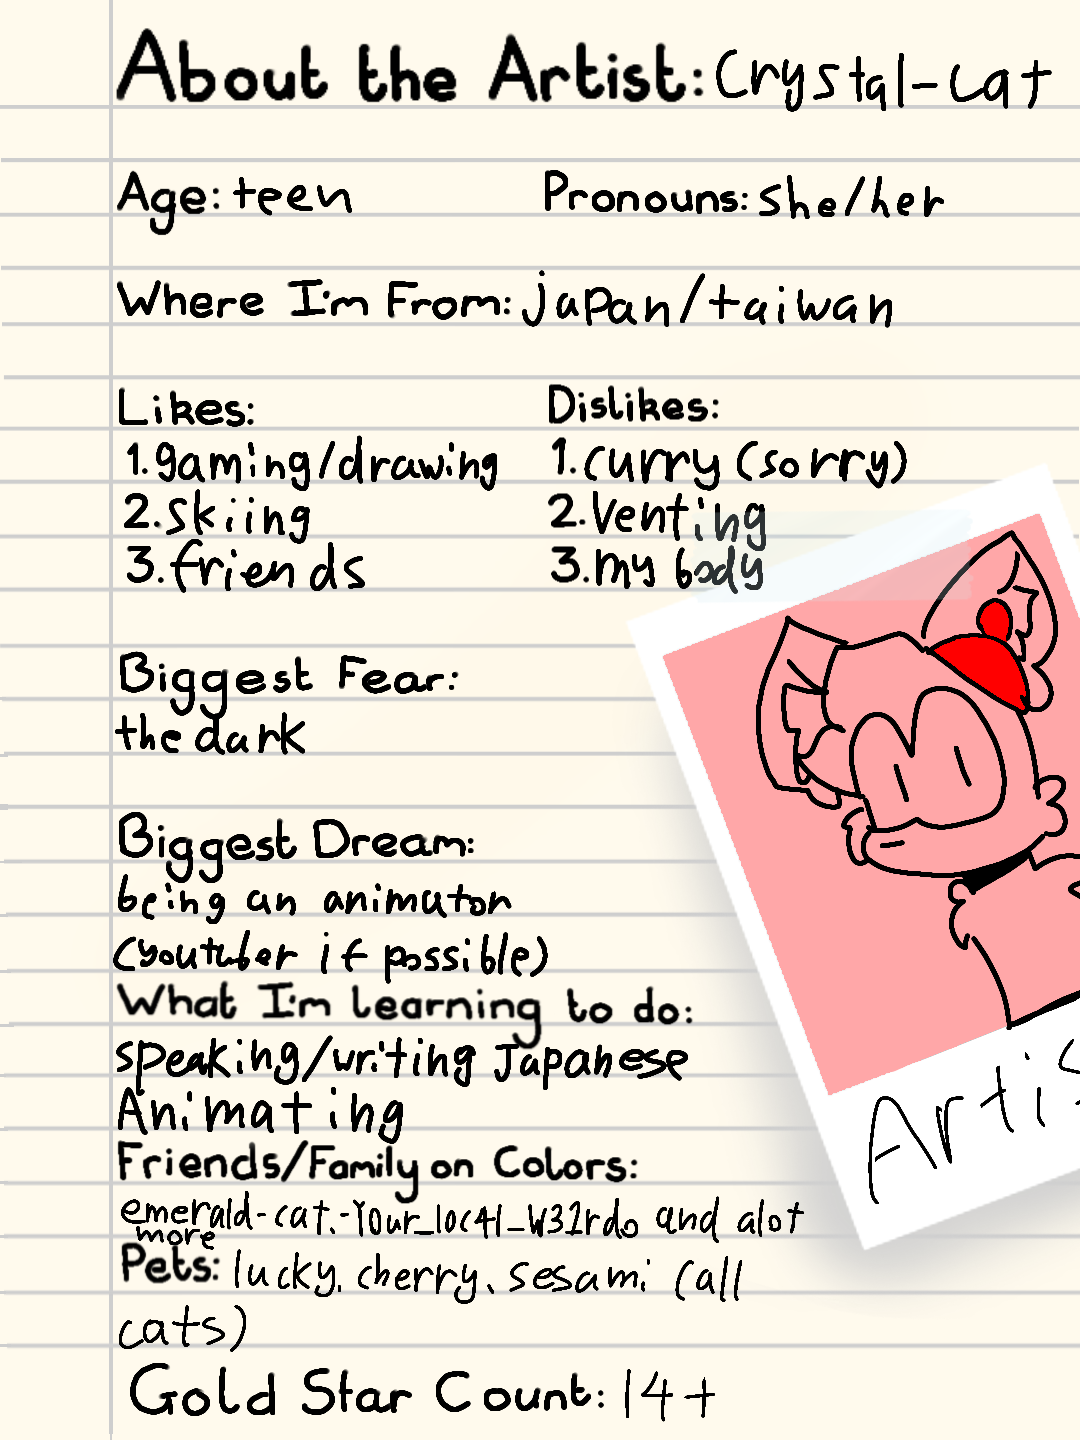 About the Artist: Crystal-cat
Age: teen Pronouns: she/her
Where I'm From: japan/taiwan
Likes: Dislikes:
1. gaming/drawing 1. curry (sorry)
2. skiing 2. Venting
3. friends 3. my body
Biggest Fear:
the dark
Biggest Dream:
being an animator
(youtuber if possible)
What I'm learning to do:
speaking/writing Japanese
Animating
Friends/Family on Colors:
emerald-cat.-Y0ur_l0c4l_W31rdo and alot
more
Pets: lucky. cherry. sesami (all
cats)
Gold Star Count: 14+
Artis